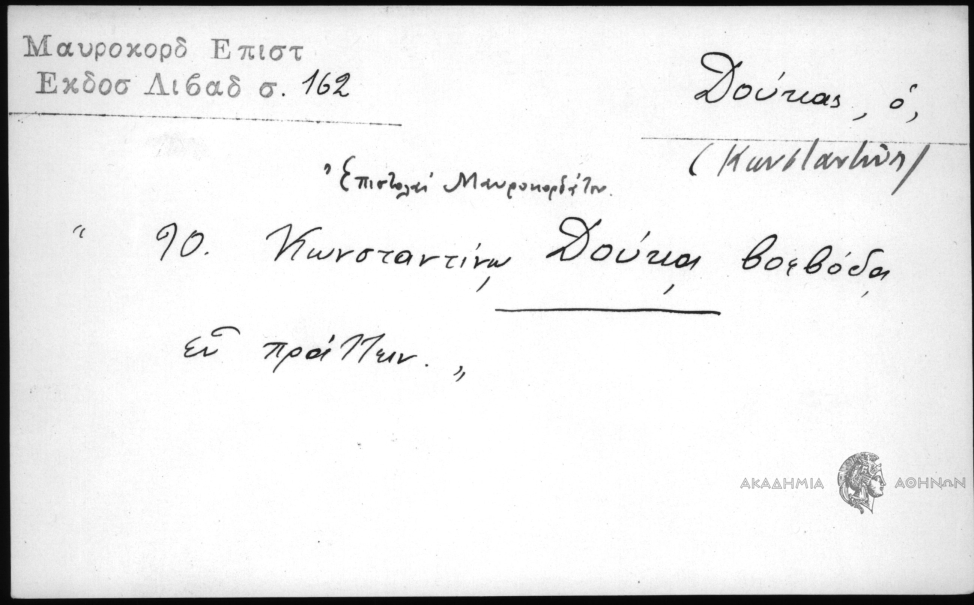 Μαυροκορδ Επιστ
Εκδοσ Λιβαδ σ. 162
Δούκας, ὁ,
(Κωνσταντῖνος)
Ἐπιστολαὶ Μαυροκορδάτου.
“ 90. Κωνσταντίνῳ Δούκᾳ βοεβόδᾳ
εὖ πράττειν. „
ΑΚΑΔΗΜΙΑ ΑΘΗΝΩΝ